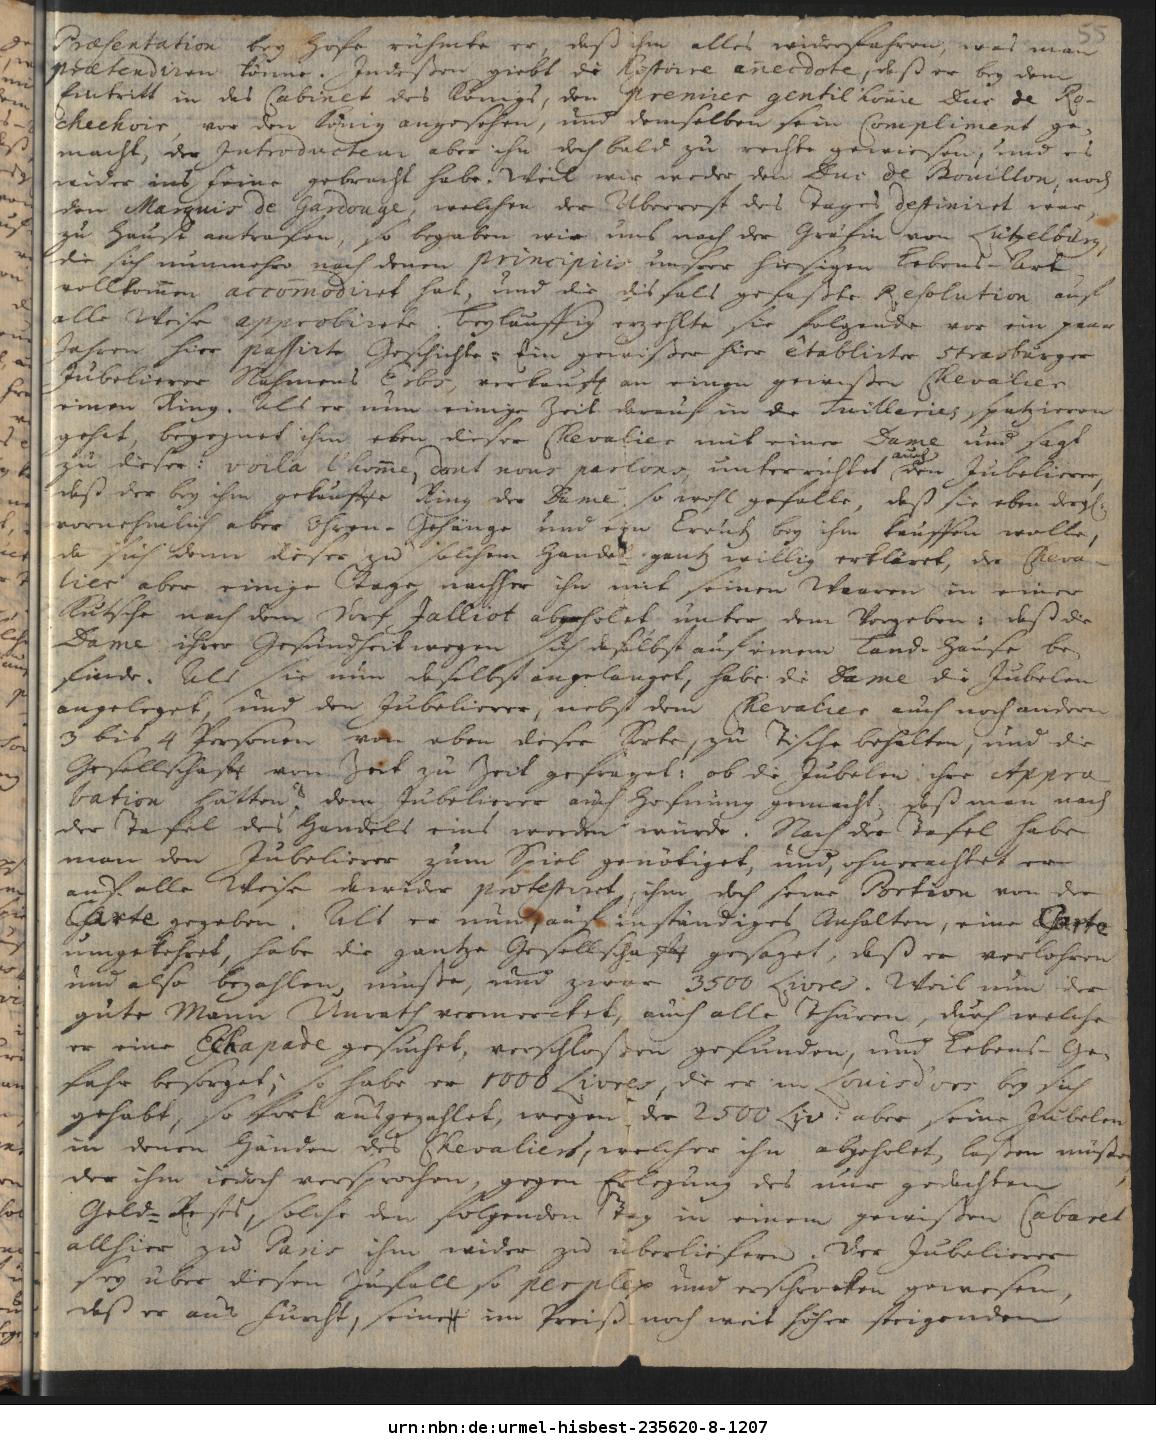 55
Præsentation bey Hofe rühmte er, daß ihm alles widerfahren, was man
prætendiren könne. Indeßen giebt die Histoire anecdote, daß er bey dem
Eintritt in das Cabinet des Königs, den premier gentil'home Duc de Ro-
chechoir, vor den König angesehen, und demselben sein Compliment ge-
macht, der Introducteur aber ihn doch bald zu rechte gewiesen, und es
wider ins feine gebracht habe. Weil wir weder den Duc de Bouillon, noch
den Marquis de Gardouge, welchen der Überrest des Tages destiniret war,
zu Hause antrafen, so begaben wir uns nach der Gräfin von Lützelburg,
die sich nunmehro nach denen principiis unsrer hiesigen Lebens-Art
vollkomen accomodiret hat, und die disfals gefaßte Resolution auf
alle Weise approbirete. Beyläuffig erzehlte sie folgende vor ein paar
Jahren hier passirte Geschichte: Ein gewißer hier établirter Strasburger
Jubelierer Nahmens Erbs, verkaufft an einen gewißen Chevalier
einen Ring. Als er nun einige Zeit darauf in die Tuilleries spatzieren
gehet, begegnet ihm eben dieser Chevalier mit einer Dame und sagt
zu dieser: voila l'home, dont nous parlons, unterrichtet auch den Jubelierer,
daß der bey ihm gekauffte Ring der Dame so wohl gefalle, daß sie eben dergl.
vornehmlich aber Ohren-Gehänge und ein Creutz bey ihm kauffen wolle,
da sich denn dieser zu solchem Handel gantz willig erkläret, der Cheva-
lier aber einige Tage nachher ihn mit seinen Waaren in einer
Kutsche nach dem Dorf Jalliot abgeholet unter dem Vorgeben: daß die
Dame ihrer Gesundheit wegen sich daselbst auf einem Land-Hause be-
finde. Als sie nun daselbst angelanget, habe die Dame die Jubelen
angeleget, und den Jubelierer, nebst dem Chevalier auch noch andern
3 bis 4 Personen von eben dieser Sorte, zu Tische behalten, und die
Gesellschafft von Zeit zu Zeit gefraget: ob die Jubelen ihre Appro-
bation hätten? dem Jubelierer auch Hofnung gemacht, daß man nach
der Tafel des Handels eins werden würde. Nach der Tafel habe
man den Jubelierer zum Spiel genötiget, und, ohnerachtet er
auf alle Weise dawider protestiret, ihm doch seine Portion von der
Carte gegeben. Als er nun, auf inständiges Anhalten, eine Carte
umgekehret, habe die gantze Gesellschafft gesaget, daß er verlohren
und also bezahlen müsse, und zwar 3500 Livres. Weil nun der
gute Mann Unrath vermercket, auch alle Thüren, durch welche
er eine Echapade gesuchet, verschloßen gefunden, und Lebens-Ge-
fahr besorget; so habe er 1000 Livres, die er in Louisd'ors bey sich
gehabt, so fort ausgezahlet, wegen der 2500 Liv: aber seine Jubelen
in denen Händen des Chevaliers, welcher ihn abgeholet, laßen müßen,
der ihm iedoch versprochen, gegen Erlegung des nur gedachten
Geld-Rests, solche den folgenden Tag in einem gewißen Cabaret
allhier zu Paris ihm wider zu überliefern. Der Jubelierer
sey über diesen Zufall so perplex und erschrocken gewesen,
daß er aus Furcht, seine im Preiß noch weit höher steigenden
urn:nbn:de:urmel-hisbest-235620-8-1207